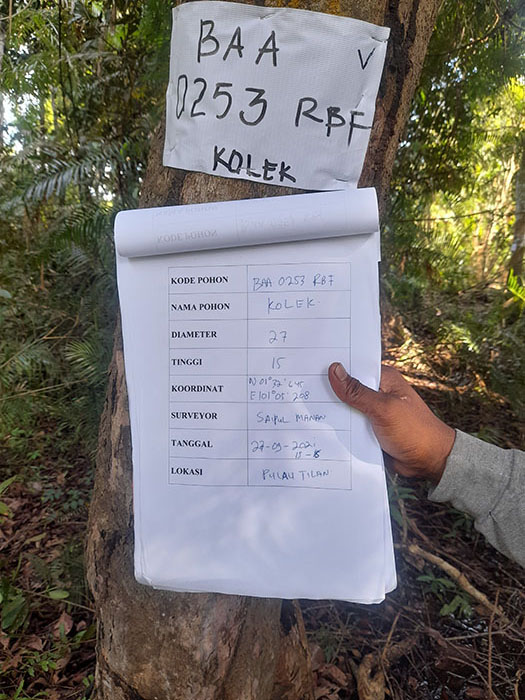 BAA V
0253 RBF
KOLEK
KODE POHON BAA 0253 RBF
NAMA POHON KOLEK
DIAMETER 27
TINGGI 15
KOORDINAT N 01°
E 101° 05' 208
SURVEYOR SAIPUL MANAN
TANGGAL 27-09-2021
LOKASI PULAU TILAN